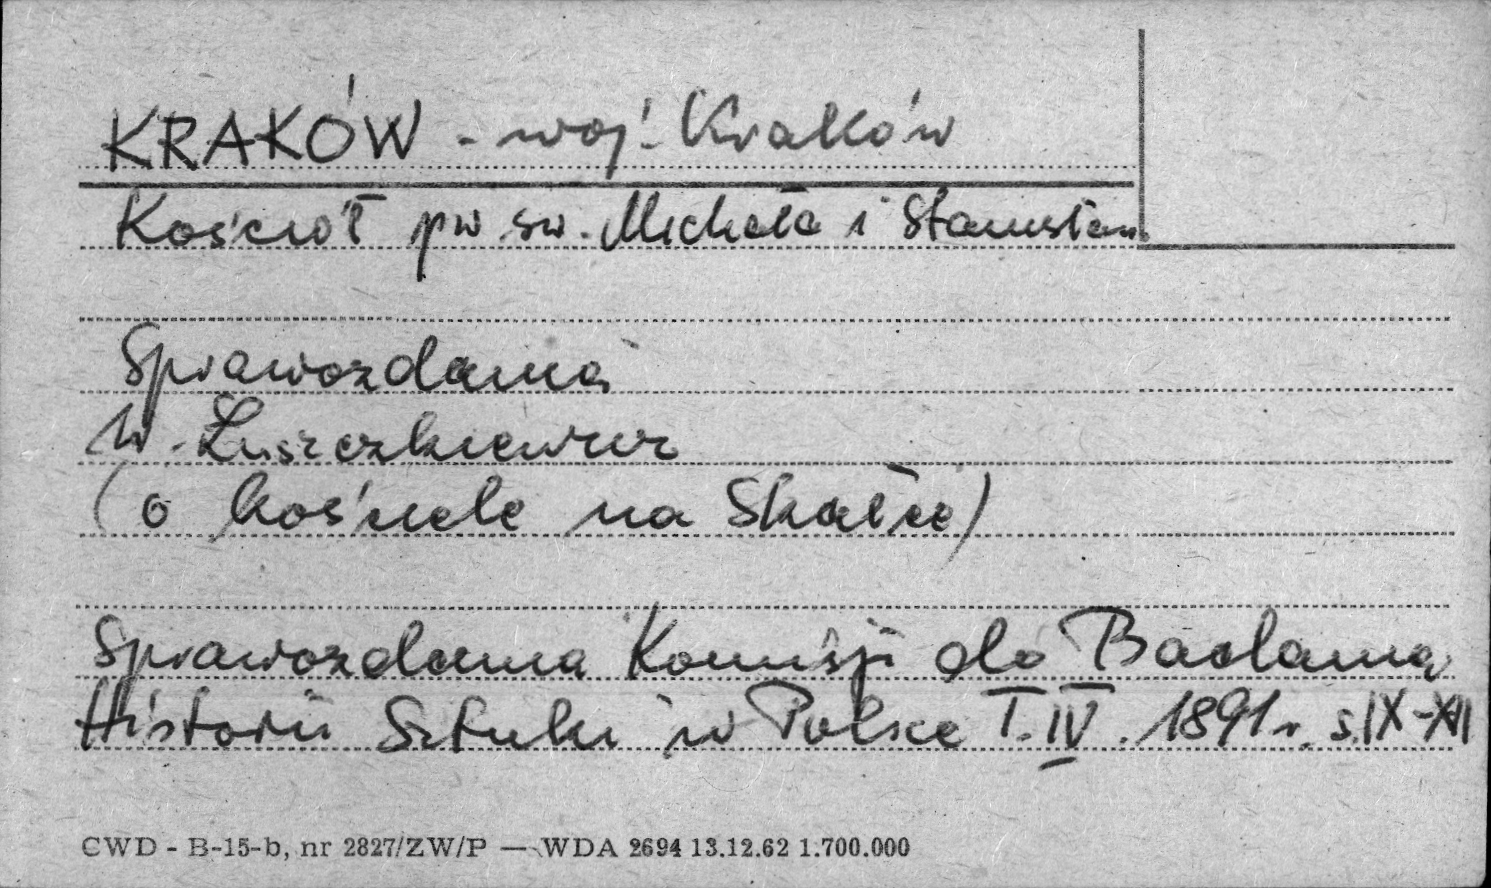 KRAKÓW - woj. Kraków
Kościół pw. św. Michała i Stanisława
Sprawozdania
W. Łuszczkiewicz
(o kościele na Skałce)
Sprawozdania Komisji do Badania
Historii Sztuki w Polsce T. IV. 1891 r. s. IX-XII
CWD - B-15-b, nr 2827/ZW/P — WDA 2694 13.12.62 1.700.000